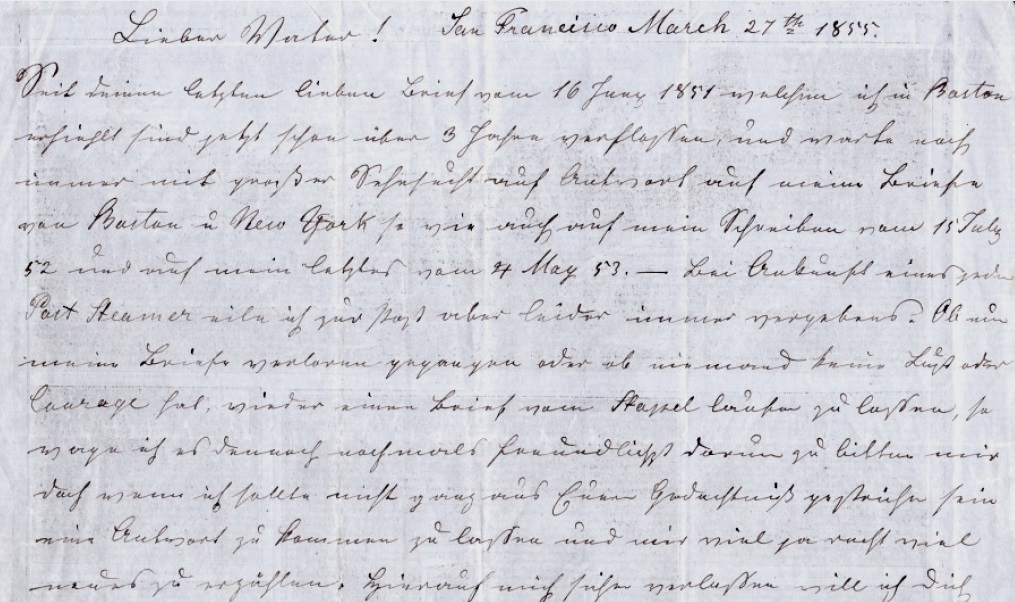 Lieber Vater! San Francisco March 27th 1855.
Seit deinen letzten lieben Brief vom 16 Juny 1851 welchen ich in Boston
erhielt sind jetzt schon über 3 Jahre verflossen, und warte noch
immer mit großer Sehnsucht auf Antwort auf meine Briefe
von Boston u New York so wie auch auf mein Schreiben vom 15 July
52 und auf mein letztes vom 4 May 53. — Bei Ankunft eines jeden
Post Steamer eile ich zur Post aber leider immer vergebens. Ob nun
meine Briefe verloren gegangen oder ob niemand keine Lust oder
Courage hat, wieder einen Brief vom Stappel laufen zu lassen, so
wage ich es dennoch nochmals freundlichst darum zu bitten mir
doch wenn ich sollte nicht ganz aus Euren Gedächtniß gestrichen sein
eine Antwort zu kommen zu lassen und mir viel ja recht viel
neues zu erzählen. Hierauf mich sicher verlassen will ich Dich